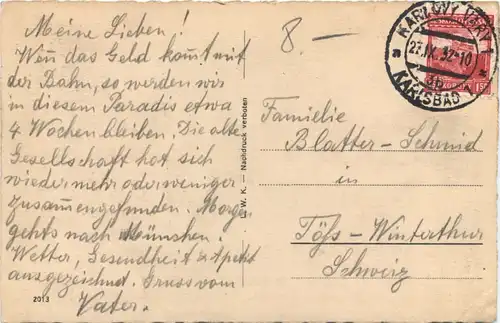 Meine Lieben!
Wenn das Geld kommt mit
der Bahn, so werden wir
in diesem Paradis etwa
4 Wochen bleiben. Die alte
Gesellschaft hat sich
wieder mehr oder weniger
zusammengefunden. Morgen
gehts nach München.
Wetter, Gesundheit & Apetit
ausgezeichnet. Gruss vom
Vater.
2013
W. K. — Nachdruck verboten
8.—
KARLOVY VARY
27.IX.32-10
KARLSBAD
Familie
Blatter-Schmid
in
Töss-Winterthur
Schweiz